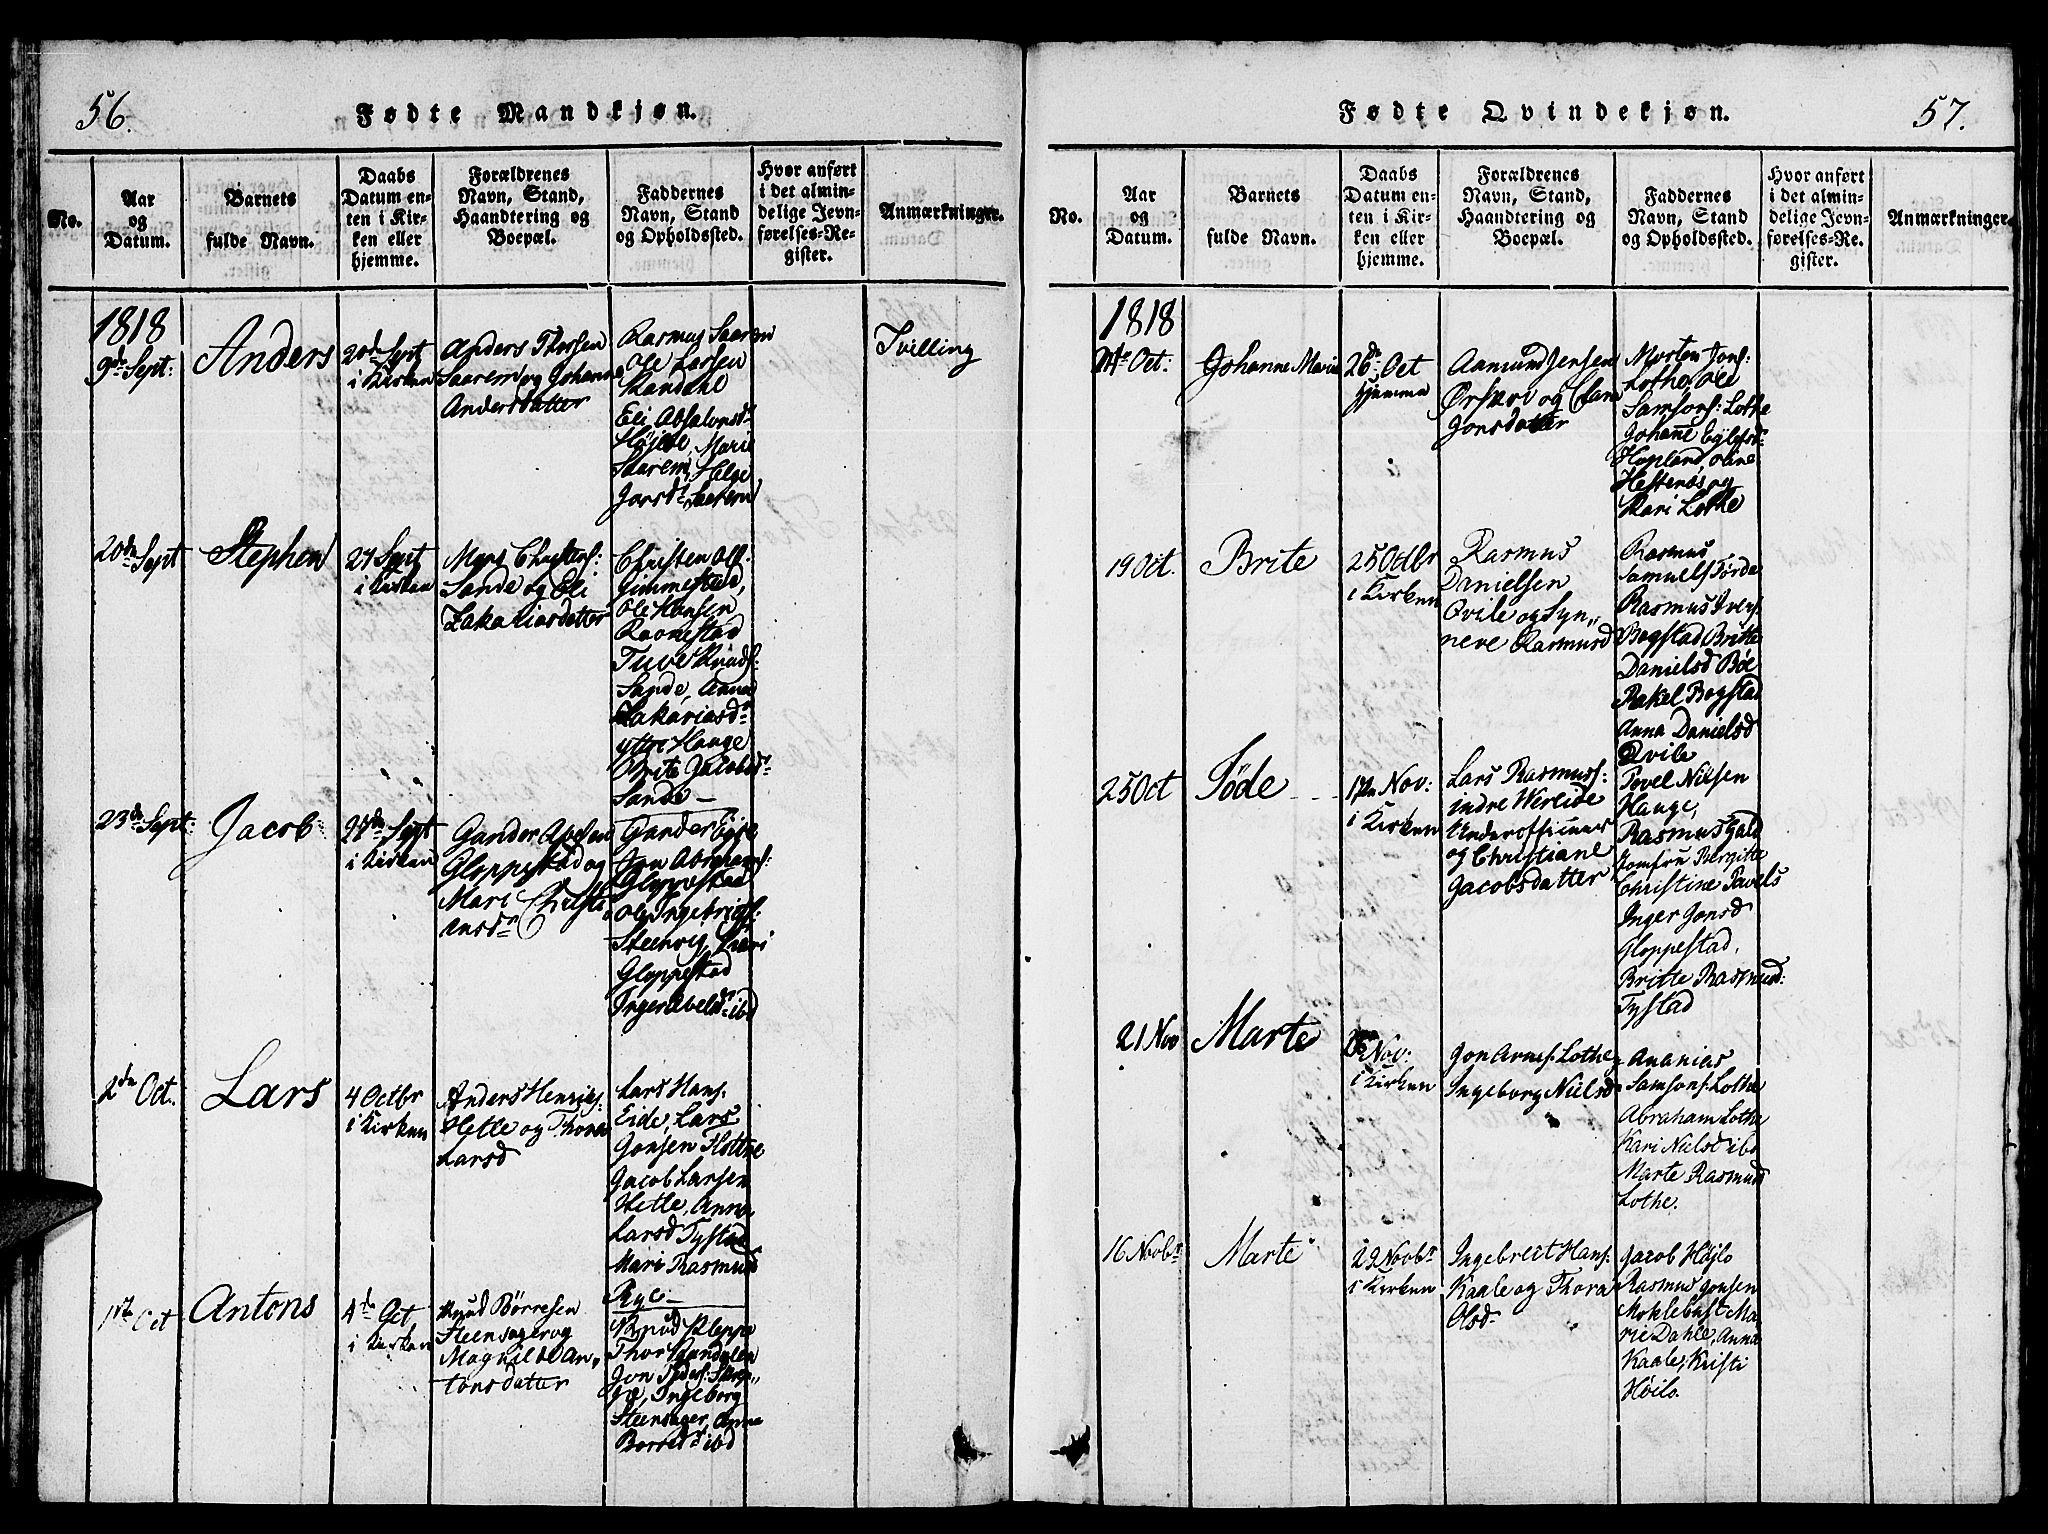 56.
Fødte Mandkjøn.
No.
Aar
og
Datum.
Barnets
fulde Navn.
Daabs
Datum en-
ten i Kir-
ken eller
hjemme.
Forældrenes
Navn, Stand,
Haandtering og
Boepæl.
Faddernes
Navn, Stand
og Opholdssted.
Hvor anført
i det almin-
delige Jevn-
førelses-Re-
gister.
Anmærkninger.
1818
9de Sept:
Anders
20de Sept
i Kirken
Anders Thorsen
Saarem og Johanne
Andersdatter
Rasmus Saarem
Ole Larsen
Mandahl
Eli Absalonsdr
Højete, Marie
Saarem, Helge
Jonsdr Saarem
Tvilling
20de Sept
Stephen
27 Sept
i Kirken
Mons Christens:
Sande og Eli
Zakariasdatter
Christen Ols:
Gimmestad,
Ole Hansen
Raonestad
Tuve Knuds:
Sande, Anna
Zakariasdr
yttre Hauge
Brite Jacobsdr
Sande —
23de Sept:
Jacob
28de Sept
i Kirken
Gander Abelsen
Gloppestad og
Mari Christi
ansdr
Gander Eyse
Jon Abrahams:
Gloppestad
Ole Ingebrigts:
Steenvig, Kari
Gloppestad
Inger Abelsdr ibd
2de Oct.
Lars
4 Octbr
i Kirken
Anders Henrics:
Hetle og Thora
Larsd
Lars Hans:
Eide, Lars
Jonsen Flottre
Jacob Larsen
Hetle, Anna
Larsd Tystad
Mari Rasmusd
Ryc —
1ste Oct
Antons
4de Oct
i Kirken
Knud Børresen
Steensager og
Magnilde An„
tonsdatter
Knud Kleppe
Thor Sandalen
Jon Peders:
Ingeborg
Steensager, Anna
Borresdr ibd
57.
Fødte Qvindekjøn.
No.
Aar
og
Datum.
Barnets
fulde Navn.
Daabs
Datum en-
ten i Kir-
ken eller
hjemme.
Forældrenes
Navn, Stand,
Haandtering og
Boepæl.
Faddernes
Navn, Stand
og Opholdssted.
Hvor anført
i det almin-
delige Jevn-
førelses-Re-
gister.
Anmærkninger.
1818
Oct:
Johanne Marie
26de Oct
hjemme
Aamund Jensen
Ørskov og
Jonsdatter
Morten Jons:
Lothe, Ole
Samsons: Lothe
Johanne Eylefsd
Hopland, Oline
Hestenøs og
Mari Lothe
19 Oct.
Brite
25 Octbr
i Kirken
Rasmus
Danielsen
Qvile og Syn„
neve Rasmusd
Rasmus
Samuels Førde
Rasmus Ivers
Bogstad Britte
Danielsd Bøe
Rakel Bogstad
Anna Danielsd
Qvile
25 Oct
Søde
1ste Nov:
i Kirken
Lars Rasmus:
indre Werlide
Underofficeer
og Christiane
Jacobsdatter
Povel Nilsen
Hauge,
Rasmus Gald
Jomfru Bergitte
Christine Pavels
Inger Jonsd
Gloppestad,
Britte Rasmusd:
Tystad
21 Nov
Marte
Nov:
i Kirken
Jon Arnes: Lothe
Ingeborg Nielsd
Ananias
Samsons: Lothe
Abraham Lothe
Kari Nielsd ibd
Marte Rasmusd
Lothe.
16 Novbr
Marte
29 Novbr
i Kirken
Ingebrect Hans:
Kaale og Thora
Olsd
Jacob Højlo
Rasmus Jonsen
Moklebust Ma
rie Dahle, Anna
Kaale, Kristi
Høilo.